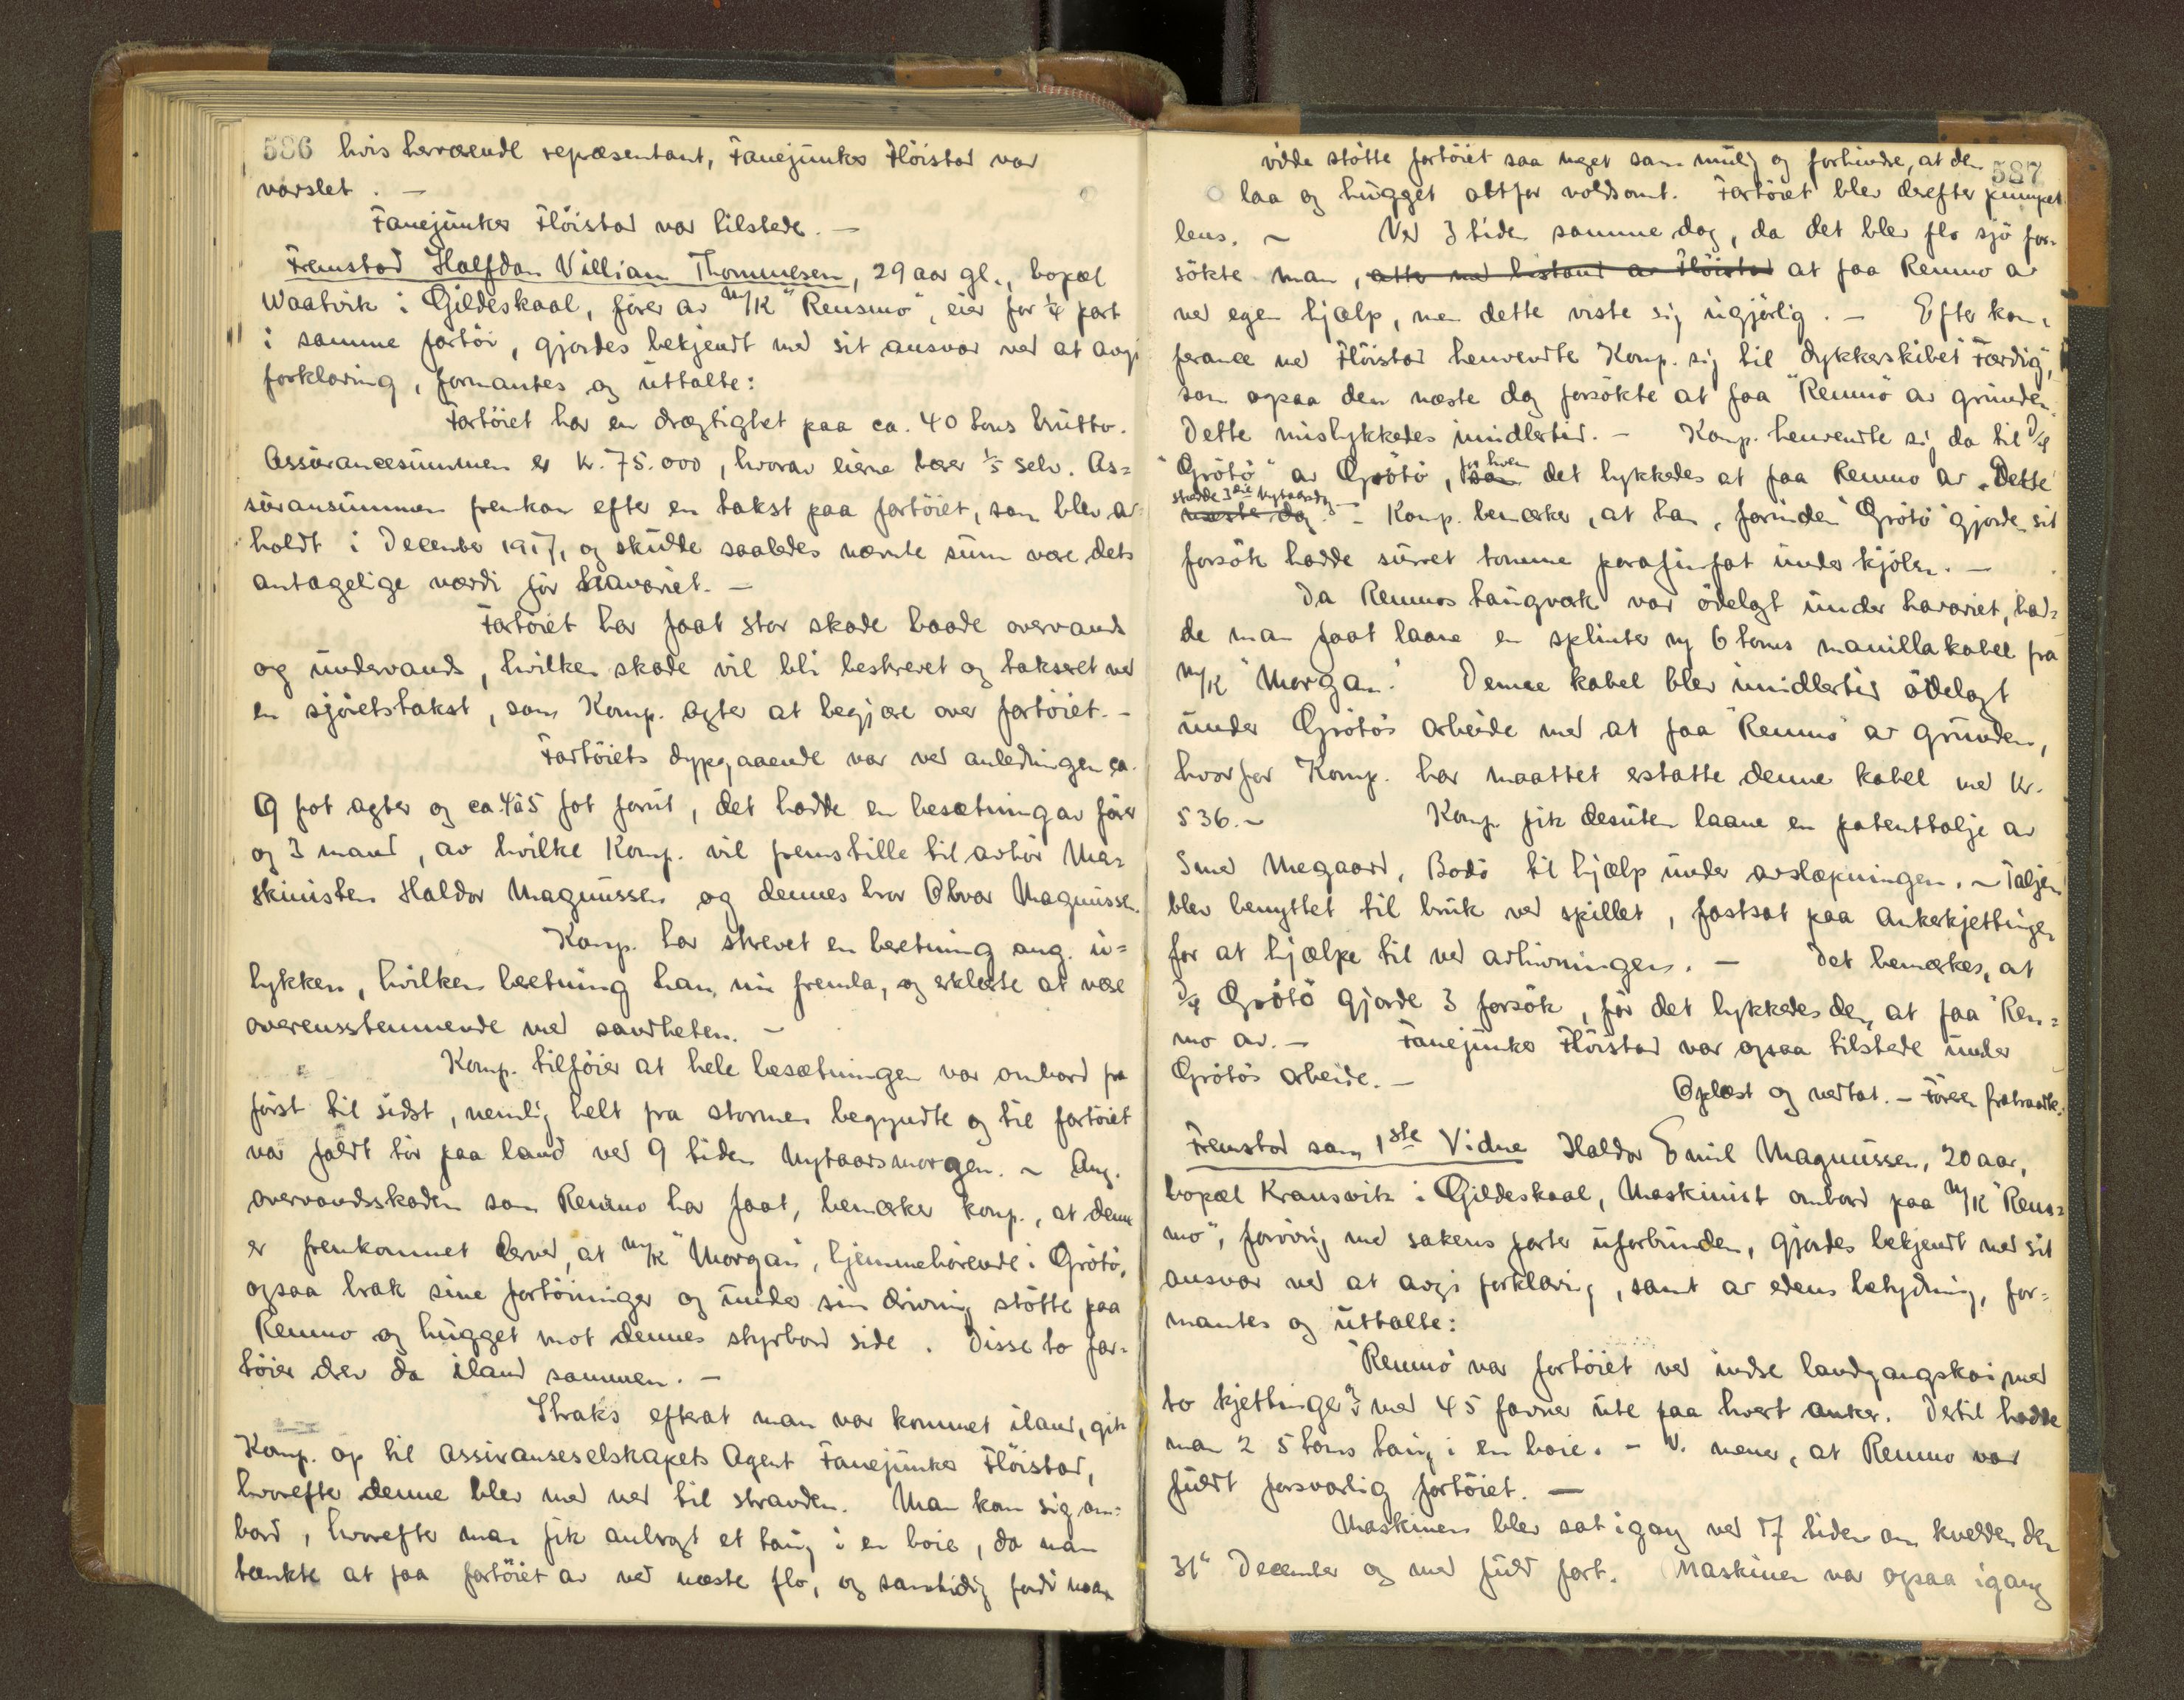 586 hvis herværende repræsentant, Fanejunker Flöistad var
varslet. —
Fanejunker Flöistad var tilstede. —
Fremstod Halfdan Villiam Thommesen, 29 aar gl., bopæl
Waatvik i Gildeskaal, förer av M/K "Rensmo", eier for ¼ part
i samme fartöi, gjordes bekjendt med sit ansvar ved at avgi
forklaring, formantes og uttalte:
Fartöiet har en drægtighet paa ca. 40 tons brutto.
Assurancesummen er kr. 75.000, hvorav eierne bærer 1/5 selv. As=
suransummen fremkom efter en takst paa fartöiet, som blev av=
holdt i December 1917, og skulde saaledes nævnte sum være dets
antagelige værdi för havariet. —
Fartöiet har faat stor skade baade overvands
og undervands, hvilken skade vil bli beskrevet og taksert ved
en sjöretstakst, som Komp. agter at begjære over fartöiet. —
Fartöiets dypgaaende var ved anledningen ca.
9 fot agter og ca. 4 à 5 fot forut, det hadde en besætning av förer
og 3 mand, av hvilke Komp. vil fremstille til avhör Ma=
skinisten Haldor Magnussen og dennes bror Olvar Magnussen.
Komp. har skrevet en beretning ang. u=
lykken, hvilken beretning han nu fremla, og erklærte at være
overensstemmende med sandheten. —
Komp. tilföier at hele besætningen var ombord fra
först til sidst, nemlig helt fra stormen begyndte og til fartöiet
var faldt tör paa land ved 9 tiden Nytaarsmorgen. — Ang.
overvandsskaden som Rensmo har faat, bemerker komp., at denne
er fremkommet derved, at M/K "Morgan", hjemmehörende i Grötö,
ogsaa brak sine fortöininger og under sin drivning stötte paa
Rensmo og hugget mot dennes styrbord side. Disse to far=
töier drev da iland sammen. —
Straks efterat man var kommet iland, gik
Komp. op til assuranseselskapets Agent Fanejunker Flöistad,
hvorefter denne blev med ned til stranden. Man kom sig om=
bord, hvorefter man fik anbragt et taug i en boie, da man
tænkte at faa fartöiet av ved næste flo, og samtidig fordi man
587
vilde stötte fartöiet saa meget som mulig og forhindre, at den
laa og hugget altfor voldsomt. Fartöiet blev derefter pumpet
lens. — Ved 3 tiden samme dag, da det blev flo sjö for=
sökte man, atter med bistand av Flöistad at faa Rensmo av
ved egen hjælp, men dette viste sig ugjörlig. — Efter kon=
ferance med Flöistad henvendte Komp. sig til dykkerskibet "Færdig",
som ogsaa den næste dag forsökte at faa "Rensmo" av grunden.
Dette mislykkedes imidlertid. — Komp. henvendte sig da til D/S
"Grötö" av Grötö, som for hvem det lykkedes at faa Rensmo av. Dette
skedde 3die Nytaarsdag
næste dag. — Komp. bemerker, at han, forinden "Grötö" gjorde sit
forsök hadde surret tomme parafinfat under kjölen. —
Da Rensmos taugverk var ödelagt under havariet, had=
de man faat laane en splinter ny 6 toms manillakabel fra
M/K "Morgan". Denne kabel blev imidlertid ödelagt
under Grötös arbeide med at faa "Rensmo" av grunden,
hvorfor Komp. har maattet erstatte denne kabel med kr.
536. — Komp. fik desuten laane en patenttalje av
Smed Megaard, Bodö til hjælp under avslæpningen. — Taljen
blev benyttet til bruk ved spillet, fastsat paa ankerkjettingen
for at hjælpe til ved avhivningen. — Det bemerkes, at
D/S Grötö gjorde 3 forsök, för det lykkedes den at faa "Rens=
mo av. — Fanejunker Flöistad var ogsaa tilstede under
Grötös arbeide. —
Oplæst og vedtat. — Föreren fratraadte.
Fremstod som 1ste Vidne Haldor Emil Magnussen, 20 aar,
bopæl Kransvik i Gildeskaal, Maskinist ombord paa M/K "Rens=
mo", forövrig med sakens parter uforbunden, gjordes bekjendt med sit
ansvar ved at avgi forklaring, samt av edens betydning, for=
mantes og uttalte:
"Rensmo" var fortöiet ved indre landgangskai med
to kjettinger med 45 favner ute paa hvert anker. Dertil hadde
man 2 5 toms taug i en boie. — V. mener, at Rensmo var
fuldt forsvarlig fortöiet. —
Maskinen blev sat igang ved 7 tiden om kvelden den
31" December og med fuld fart. Maskinen var ogsaa igang